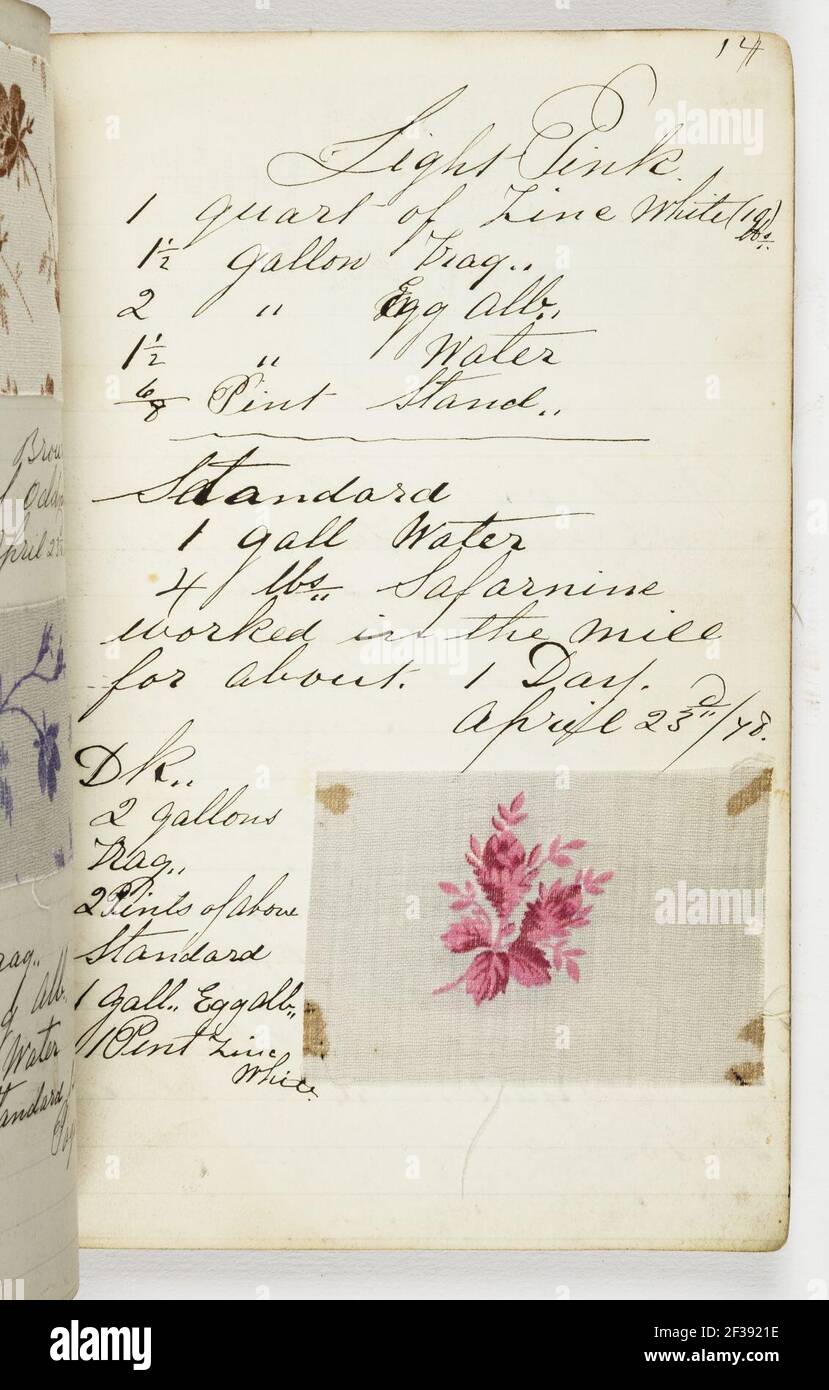 14
Light Pink
1 quart of Zinc White (19 lbs.)
1 1/2 gallon Trag,,
2 " Egg Alb,,
1 1/2 " Water
6/8 Pint Stand,,
Standard
1 gall Water
4 lbs Safarnine
worked in the mill
for about. 1 Day.
April 23d/78.
Dk,,
2 gallons
Trag,,
2 Pints of above
Standard
1 Gall,, Egg Alb,,
1 Pint Zinc
White.
Brow
April 2
Trag,,
Alb
Water
tandard
alamy
Image ID: 2F3921E
www.alamy.com